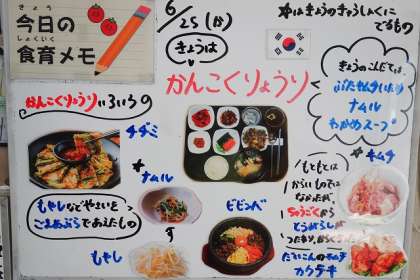 きょう
今日の
しょくいく
食育メモ
6/25(火)
きょうは
かんこくりょうり
*はきょうのきゅうしょくに
でるもの
きょうのこんだては、
ぶたキムチいため
ナムル
わかめスープ
かんこくりょうりいろいろ
チヂミ
*ナムル
もやしなどやさいを
ごまあぶらであえたもの
もやし
ビビンバ
もともとは
からいものでは
なかったが、
ちゅうごくから
とうがらしが
つたわり、からくなった
*キムチ
だいこんのキムチ
カクテキ